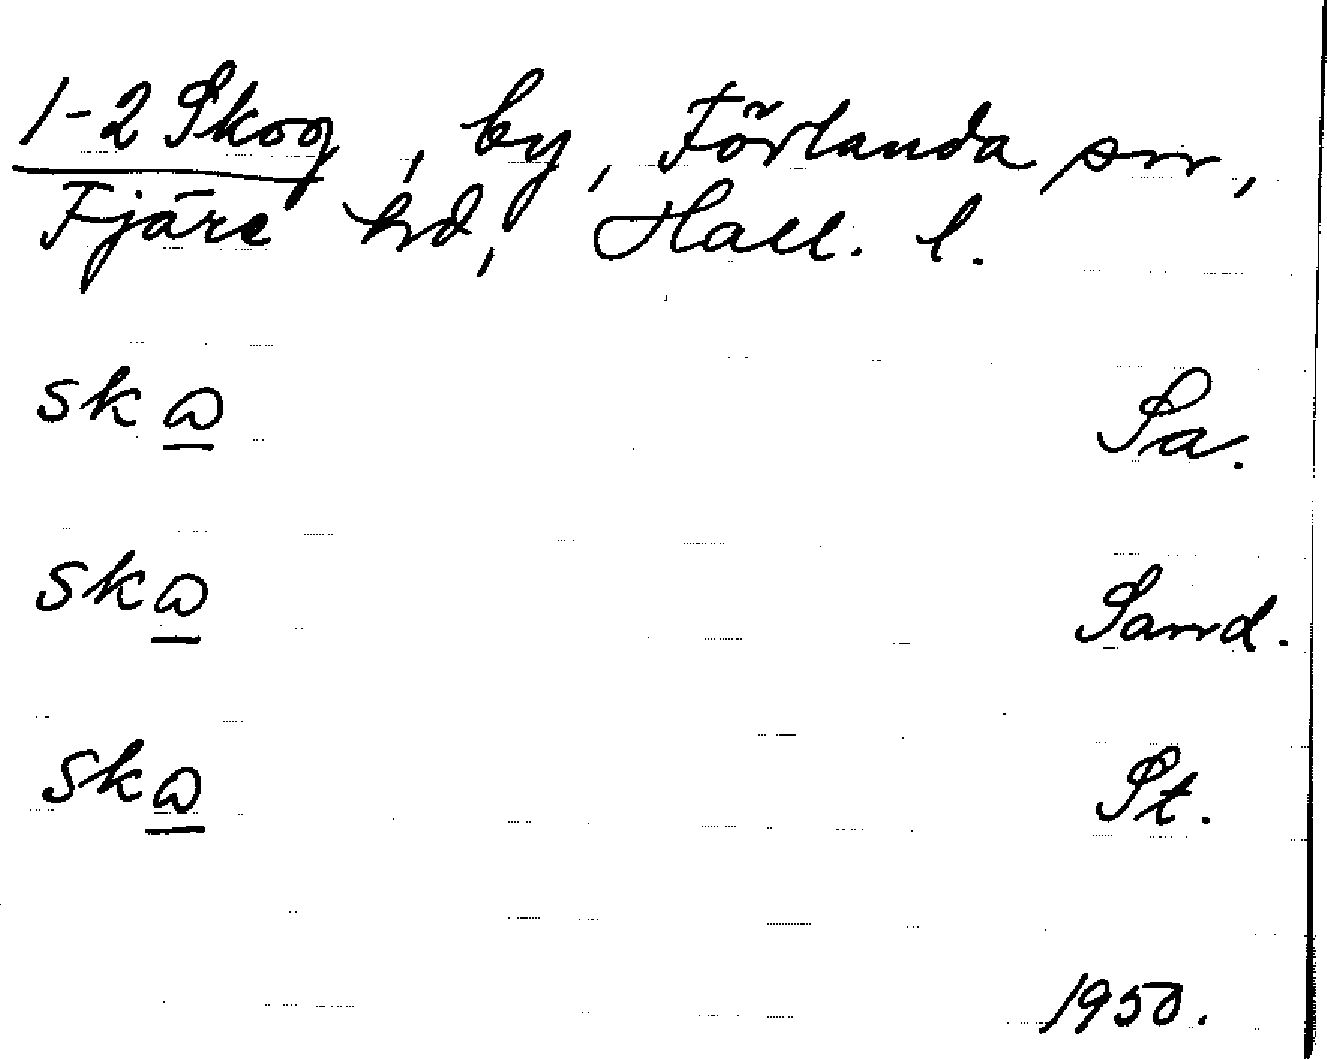 1-2 Skog, by, Förlanda sn,
Fjäre hd, Hall. l.
skω Sa.
skω Sand.
skω St.
1950.